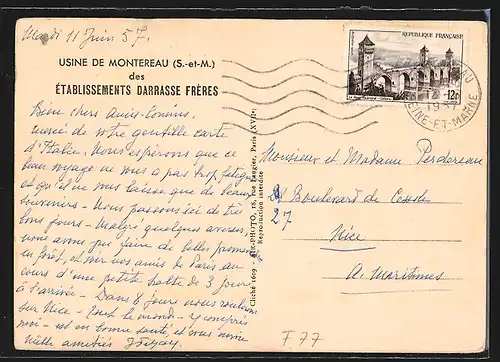 Mardi 11 Juin 57.
USINE DE MONTEREAU (S.-et-M.)
des
ÉTABLISSEMENTS DARRASSE FRÈRES
Bien chers Amis-Cousins,
merci de votre gentille carte
d'Italie. Nous espérons que ce
beau voyage ne vous a pas trop fatigués
et qu'il ne vous laisse que de beaux
souvenirs. Nous passons ici de très
bons jours. Malgré quelques averses,
nous avons pu faire de belles promenades
en forêt, et voir nos amis de Paris au
cours d'une petite halte de 3 jours
à l'arrivée. Dans 8 jours nous roulerons
sur Nice. Tout le monde y compris
moi est en bonne santé et vous envoie
mille amitiés
Cliché 1609 AIR-PHOTO, 18, rue Laugier, Paris (XVIIe)
Reproduction interdite
REPUBLIQUE FRANÇAISE
12F
1957
SEINE-ET-MARNE
Monsieur et Madame Perdereau
Boulevard de
27
Nice
A. Maritimes
F 77